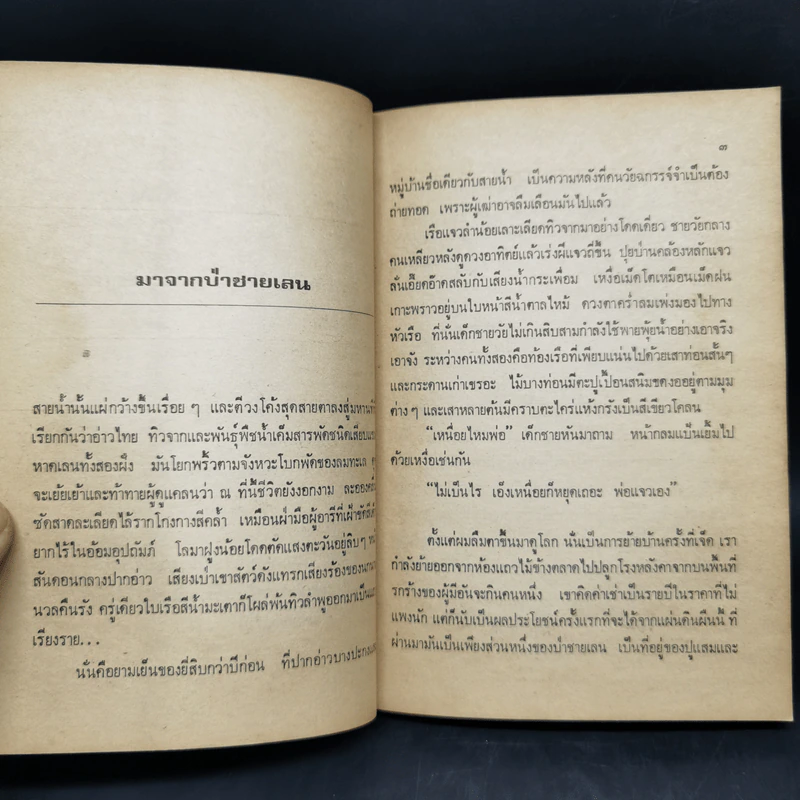 มาจากป่าชายเลน
สายน้ำนั้นแผ่กว้างขึ้นเรื่อย ๆ และตีวงโค้งสุดสายตาลงสู่มหานที
เรียกกันว่าอ่าวไทย ทิวจากและพันธุ์พืชน้ำเค็มสารพัดชนิดเสียบแซม
หาดเลนทั้งสองฝั่ง มันโยกพริ้วตามจังหวะโบกพัดของลมทะเล
จะเย้ยเย้าและท้าทายผู้ดูแคลนว่า ณ ที่นี้ชีวิตยังงอกงาม ละออง
ซัดสาดละเลียดไล้รากโกงกางสีคล้ำ เหมือนฝ่ามือผู้อารีที่เฝ้าขัดสี
ยากไร้ในอ้อมอุปถัมภ์ โลมาฝูงน้อยโดดตัดแสงตะวันอยู่ลิบๆ
สันดอนกลางปากอ่าว เสียงเป่าเขาสัตว์ดังแทรกเสียงร้องของนก
นวลคืนรัง ครู่เดียวใบเรือสีน้ำมะเดาก็โผล่พ้นทิวลำพูออกมาเป็น
เรียงราย...
นั่นคือยามเย็นของยี่สิบกว่าปีก่อน ที่ปากอ่าวบางปะกง
๓
หมู่บ้านชื่อเดียวกับสายน้ำ เป็นความหลังที่คนวัยฉกรรจ์จำเป็นต้อง
ถ่ายทอด เพราะผู้เฒ่าอาจลืมเลือนมันไปแล้ว
เรือแจวลำน้อยเลาะเลียดทิวจากมาอย่างโดดเดี่ยว ชายวัยกลาง
คนเหลียวหลังดูดวงอาทิตย์แล้วเร่งฝีแจวถี่ขึ้น ปุยป่านคล้องหลักแจว
ลั่นเอี๊ยดอ๊าดสลับกับเสียงน้ำกระเพื่อม เหงื่อเม็ดโตเหมือนเม็ดฝน
เกาะพราวอยู่บนใบหน้าสีน้ำตาลไหม้ ดวงตาคร่ำลมเพ่งมองไปทาง
หัวเรือ ที่นั่นเด็กชายวัยไม่เกินสิบสามกำลังใช้พายพุ้ยน้ำอย่างเอาจริง
เอาจัง ระหว่างคนทั้งสองคือท้องเรือที่เพียบแน่นไปด้วยเสาท่อนสั้นๆ
และกระดานเก่าเขรอะ ไม้บางท่อนมีตะปูเปื้อนสนิมชดงออยู่ตามมุม
ต่างๆ และเสาหลายต้นมีคราบตะไคร่แห้งกรังเป็นสีเขียวโคลน
“เหนื่อยไหมพ่อ” เด็กชายหันมาถาม หน้ากลมแป้นเยิ้มไป
ด้วยเหงื่อเช่นกัน
“ไม่เป็นไร เอ็งเหนื่อยก็หยุดเถอะ พ่อแจวเอง”
ตั้งแต่ผมลืมตาขึ้นมาดูโลก นั่นเป็นการย้ายบ้านครั้งที่เจ็ด เรา
กำลังย้ายออกจากห้องแถวไม้ข้างตลาดไปปลูกโรงหลังคาจากบนพื้นที่
รกร้างของผู้มีอันจะกินคนหนึ่ง เขาคิดค่าเช่าเป็นรายปีในราคาที่ไม่
แพงนัก แต่ก็นับเป็นผลประโยชน์ครั้งแรกที่จะได้จากแผ่นดินผืนนี้ ที่
ผ่านมามันเป็นเพียงส่วนหนึ่งของป่าชายเลน เป็นที่อยู่ของปูแสมและ